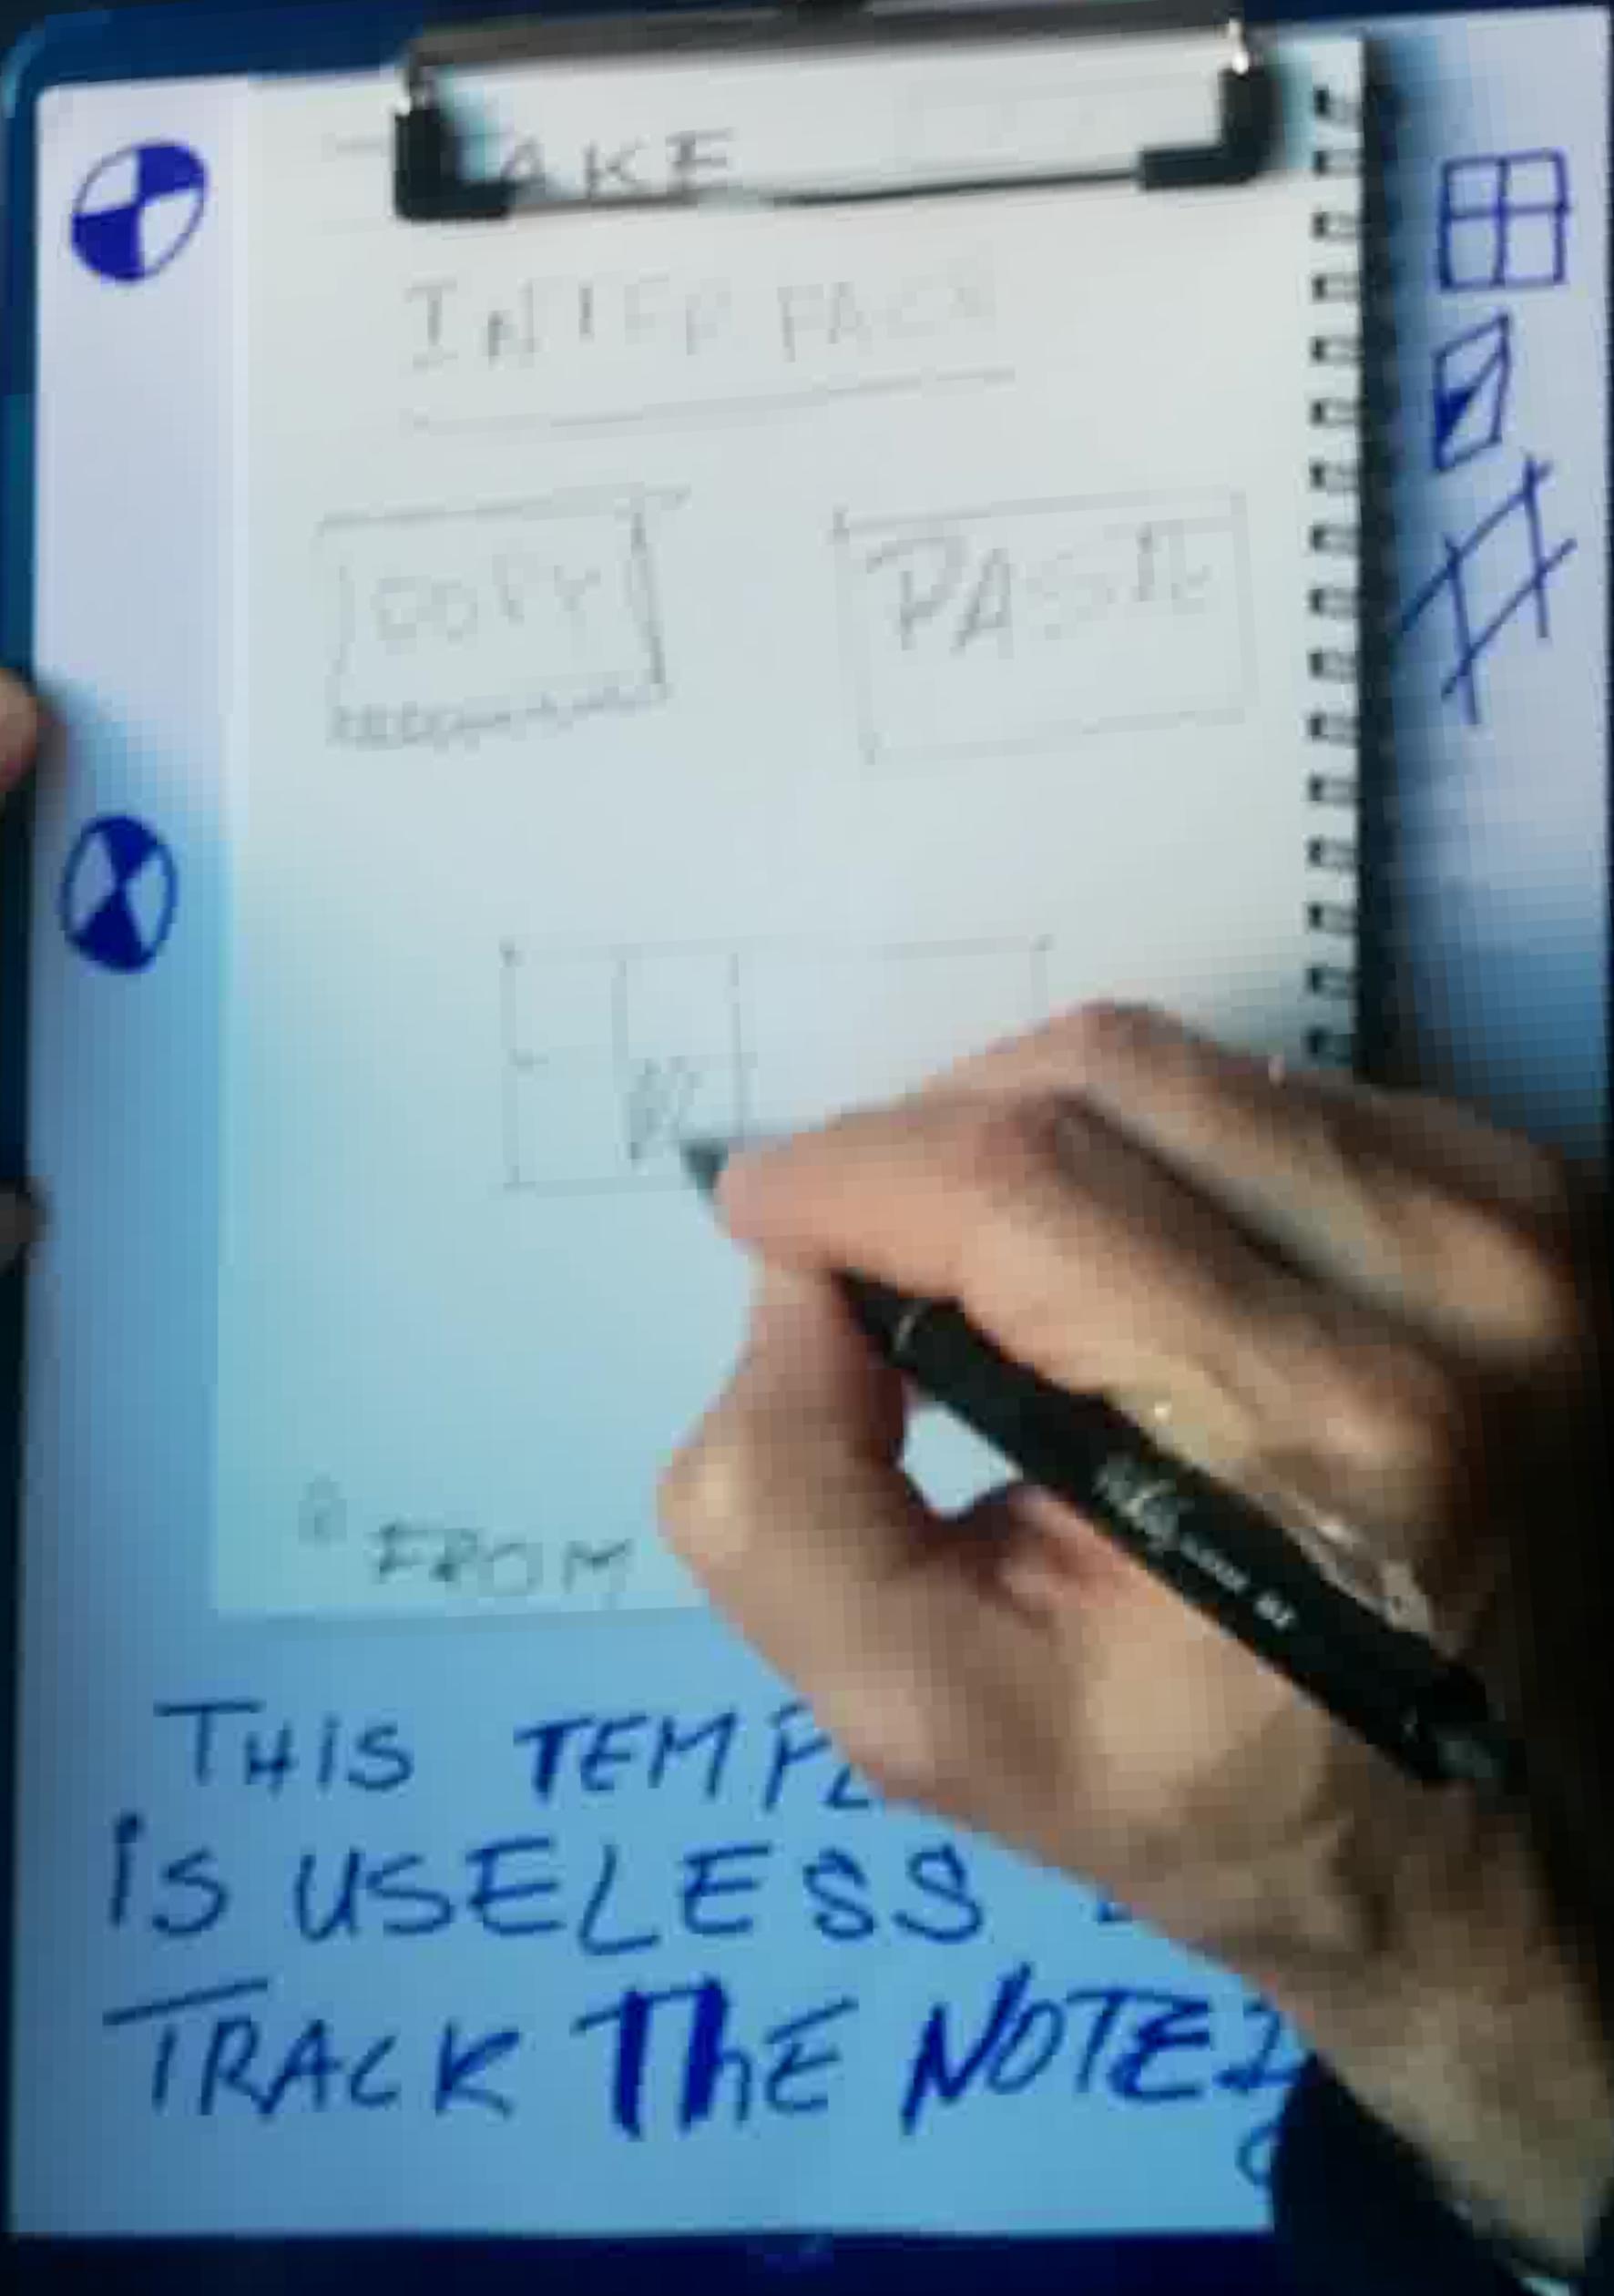 AKE
INTERFACE
COPY PASTE
FROM
THIS TEMPL
IS USELESS
TRACK ThE NOTE